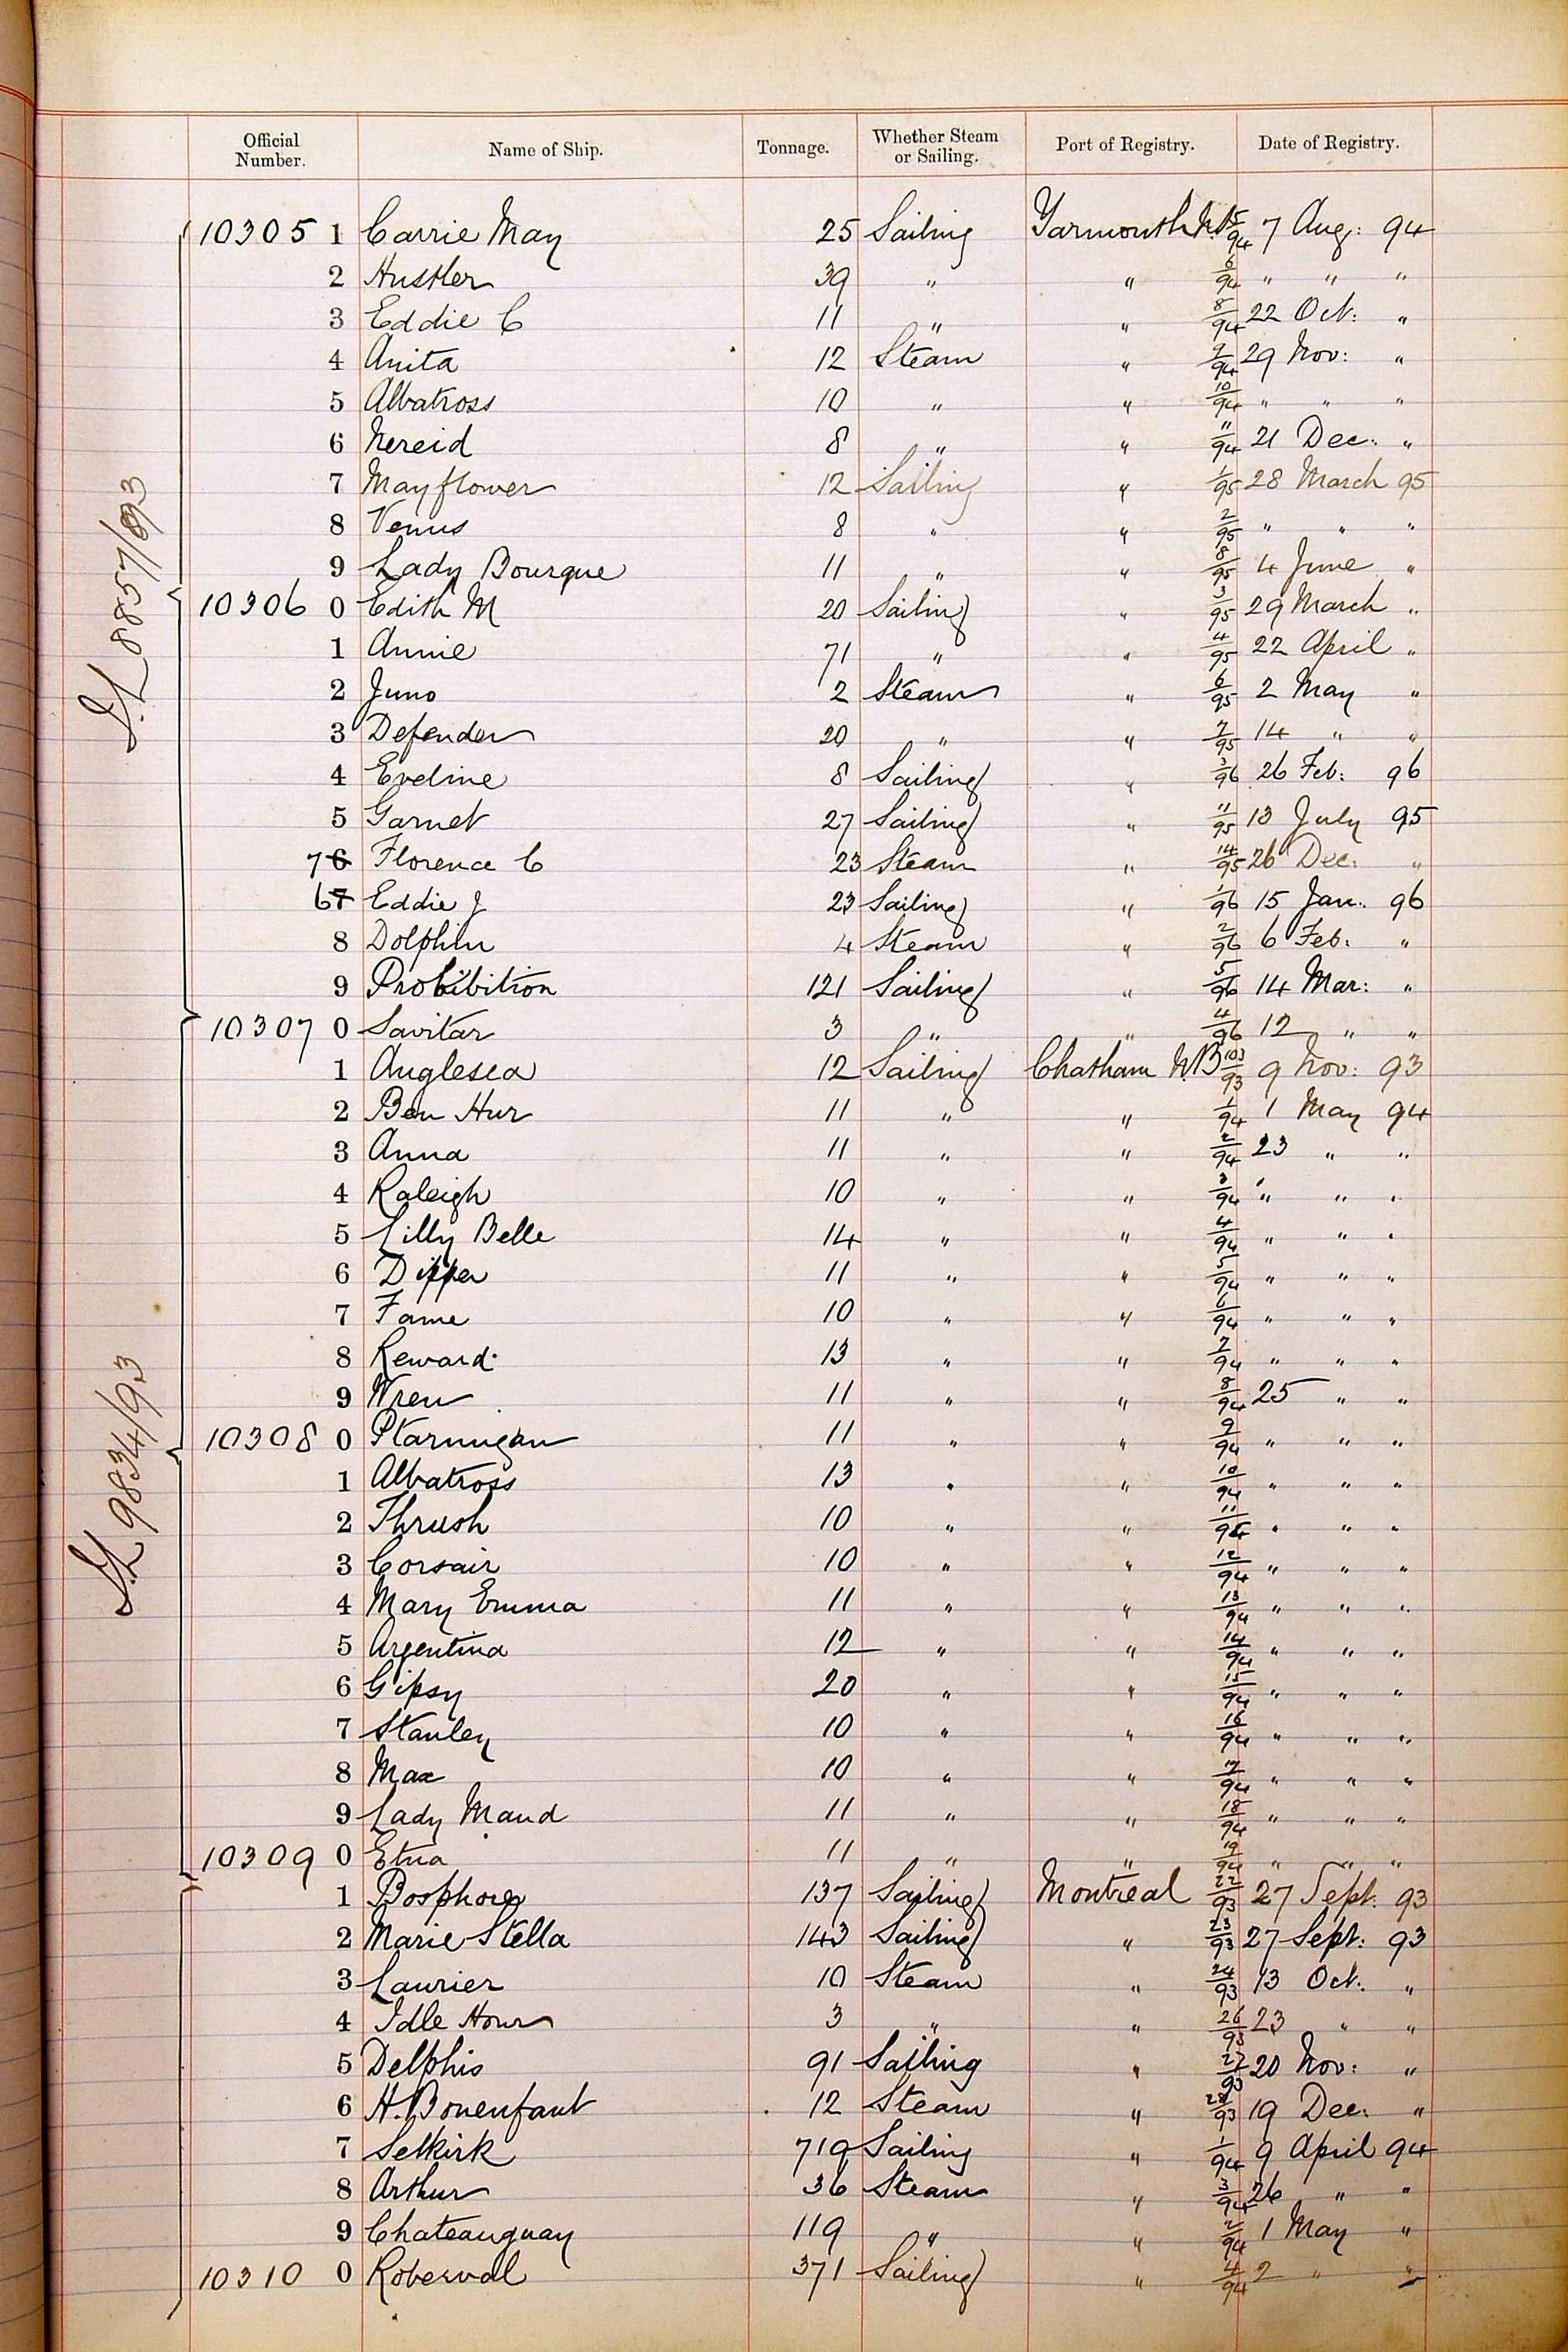 Official Number. Name of Ship. Tonnage. Whether Steam or Sailing. Port of Registry. Date of Registry.
10305 1 Carrie May 25 Sailing Yarmouth N.S. 5/94 7 Aug: 94
2 Hustler 39 " " 6/94 " " "
3 Eddie C 11 " " 8/94 22 Oct: "
4 Anita 12 Steam " 9/94 29 Nov: "
5 Albatross 10 " " 10/94 " " "
6 Nereid 8 " " 11/94 21 Dec: "
7 Mayflower 12 Sailing " 1/95 28 March 95
8 Venus 8 " " 2/95 " " "
9 Lady Bourque 11 " " 8/95 4 June "
10306 0 Edith M 20 Sailing " 3/95 29 March "
1 Annie 71 " " 4/95 22 April "
2 Juno 2 Steam " 6/95 2 May "
3 Defender 20 " " 7/95 14 " "
4 Eveline 8 Sailing " 3/96 26 Feb: 96
5 Garnet 27 Sailing " 11/95 13 July 95
76 Florence C 23 Steam " 14/95 26 Dec: "
67 Eddie J 23 Sailing " 1/96 15 Jan: 96
8 Dolphin 4 Steam " 2/96 6 Feb: "
9 Prohibition 121 Sailing " 5/96 14 Mar: "
10307 0 Savitar 3 " " 4/96 12 " "
1 Anglesea 12 Sailing Chatham N.B 103/93 9 Nov: 93
2 Ben Hur 11 " " 1/94 1 May 94
3 Anna 11 " " 2/94 23 " "
4 Raleigh 10 " " 3/94 " " "
5 Lilly Belle 14 " " 4/94 " " "
6 Dipper 11 " " 5/94 " " "
7 Fame 10 " " 6/94 " " "
8 Reward 13 " " 7/94 " " "
9 Wren 11 " " 8/94 25 " "
10308 0 Ptarmigan 11 " " 9/94 " " "
1 Albatross 13 " " 10/94 " " "
2 Thrush 10 " " 11/94 " " "
3 Corsair 10 " " 12/94 " " "
4 Mary Emma 11 " " 13/94 " " "
5 Argentina 12 " " 14/94 " " "
6 Gipsy 20 " " 15/94 " " "
7 Stanley 10 " " 16/94 " " "
8 Max 10 " " 17/94 " " "
9 Lady Maud 11 " " 18/94 " " "
10309 0 Etna 11 " " 19/94 " " "
1 Bosphore 137 Sailing Montreal 22/93 27 Sept: 93
2 Marie Stella 143 Sailing " 23/93 27 Sept: 93
3 Laurier 10 Steam " 24/93 13 Oct: "
4 Idle Hour 3 " " 26/93 23 " "
5 Delphis 91 Sailing " 27/93 20 Nov: "
6 H. Bonenfant 12 Steam " 28/93 19 Dec: "
7 Selkirk 719 Sailing " 1/94 9 April 94
8 Arthur 36 Steam " 3/94 26 " "
9 Chateauguay 119 " " 2/94 1 May "
10310 0 Roberval 371 Sailing " 4/94 2 " "
8857/93
9834/93